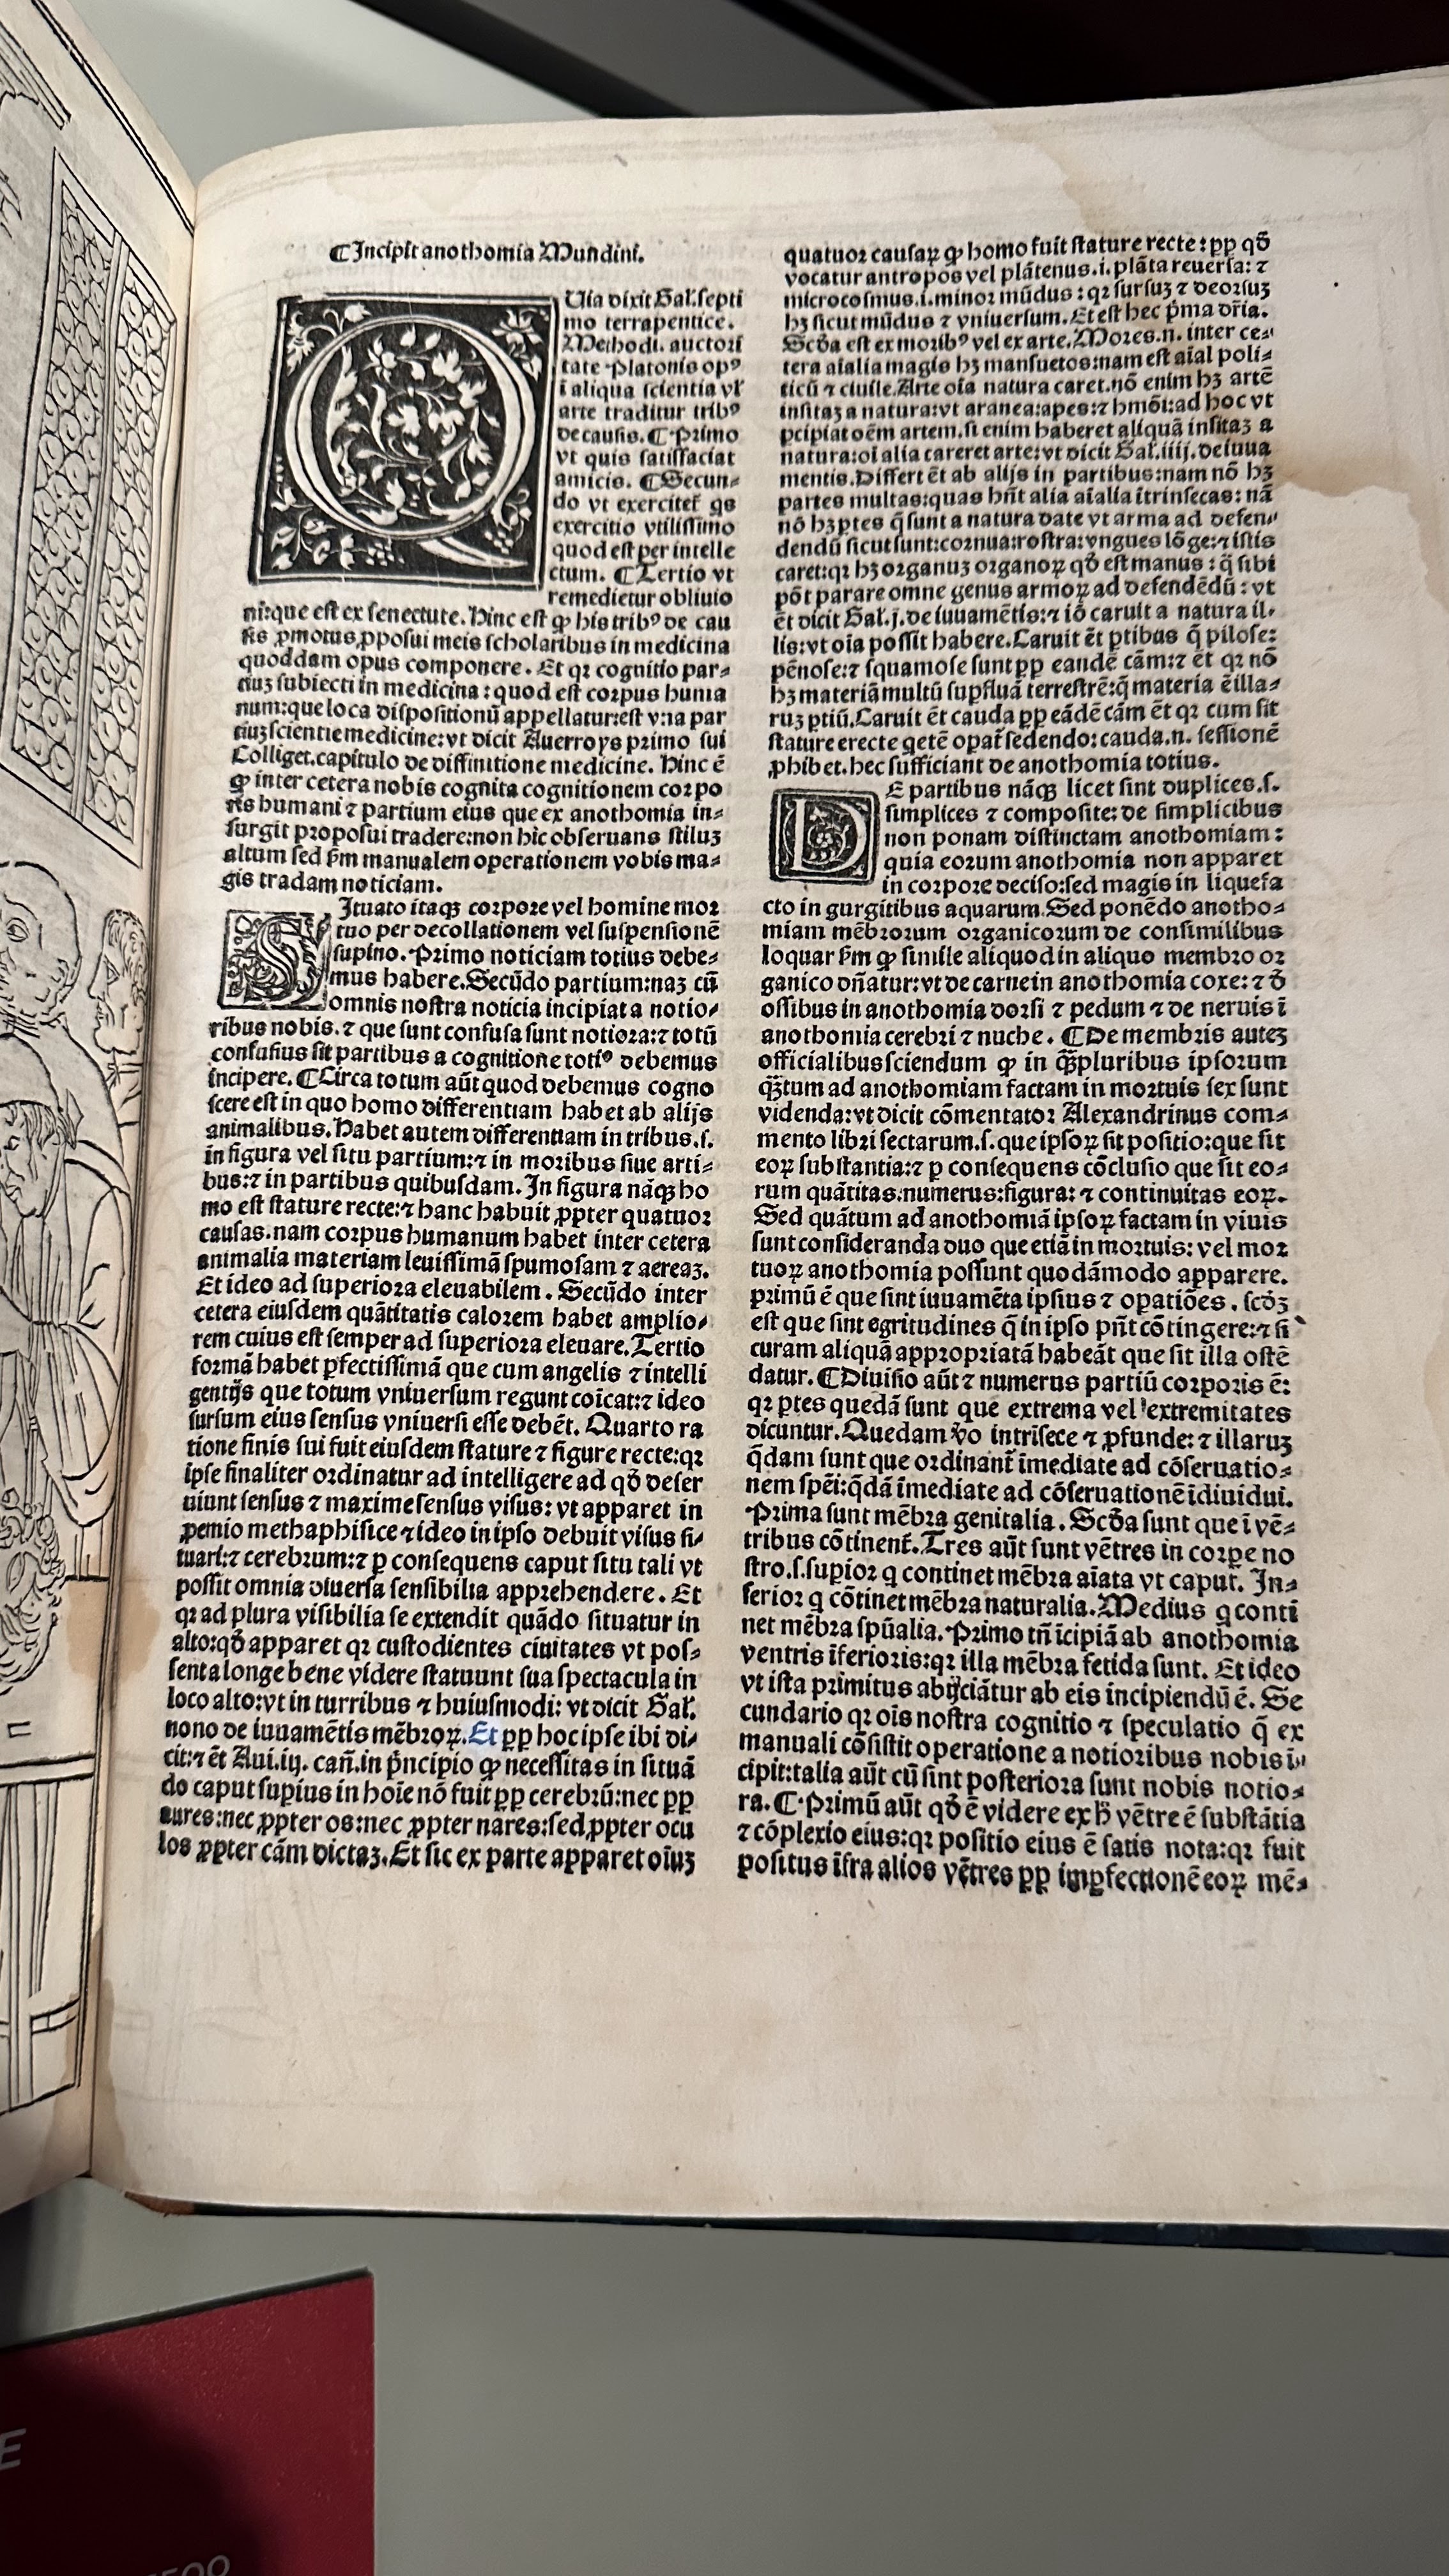 ¶Incipit anothomia Mundini.
QUia dixit Gal. septi
mo terrapentice.
Methodi. auctori
tate Platonis opꝰ
ī aliqua scientia vł
arte traditur tribꝰ
de causis. ¶Primo
vt quis satiffaciat
amicis. ¶Secun⸗
do vt exercitet̄ gs
exercitio vtilissimo
quod est per intelle
ctum. ¶Tertio vt
remedietur obliuio
ni:que est ex senectute. Hinc est ꝙ his tribꝰ de cau
sis ꝓmotus ꝓposui meis scholaribus in medicina
quoddam opus componere. Et qꝛ cognitio par⸗
tiuʒ subiecti in medicina: quod est corpus huma
num:que loca dispositionū appellatur:est vna par
tiuʒ scientie medicine:vt dicit Auerroys primo sui
Colliget.capitulo de diffinitione medicine. Hinc ē
ꝙ inter cetera nobis cognita cognitionem corpo
ris humani ⁊ partium eius que ex anothomia in⸗
surgit proposui tradere:non hic obseruans stiluʒ
altum sed ẜm manualem operationem vobis ma⸗
gis tradam noticiam.
SItuato itaqʒ corpore vel homine mor
tuo per decollationem vel suspensionē
supino. Primo noticiam totius debe⸗
mus habere.Secūdo partium:naʒ cū
omnis nostra noticia incipiat a notio⸗
ribus nobis. ⁊ que sunt confusa sunt notiora:⁊ totū
confusius sit partibus a cognitione totiꝰ debemus
incipere. ¶Circa totum aūt quod debemus cogno
scere est in quo homo differentiam habet ab alijs
animalibus. Habet autem differentiam in tribus.s.
in figura vel situ partium:⁊ in moribus siue arti⸗
bus:⁊ in partibus quibusdam. In figura nāqʒ ho
mo est stature recte:⁊ hanc habuit ꝓpter quatuor
causas.nam corpus humanum habet inter cetera
animalia materiam leuissimā spumosam ⁊ aereaʒ.
Et ideo ad superiora eleuabilem. Secūdo inter
cetera eiusdem quātitatis calorem habet amplio⸗
rem cuius est semper ad superiora eleuare.Tertio
formā habet ꝑfectissimā que cum angelis ⁊ intelli
gentijs que totum vniuersum regunt coīcat:⁊ ideo
sursum eius sensus vniuersi esse debēt. Quarto ra
tione finis sui fuit eiusdem stature ⁊ figure recte:qꝛ
ipse finaliter ordinatur ad intelligere ad qđ deser
uiunt sensus ⁊ maxime sensus visus: vt apparet in
ꝓemio methaphisice ⁊ ideo in ipso debuit visus si⸗
tuari:⁊ cerebrum:⁊ ꝑ consequens caput situ tali vt
possit omnia diuersa sensibilia apprehendere. Et
qꝛ ad plura visibilia se extendit quādo situatur in
alto:qđ apparet qꝛ custodientes ciuitates vt pos⸗
sent a longe bene videre statuunt sua spectacula in
loco alto:vt in turribus ⁊ huiusmodi: vt dicit Gal.
nono de iuuamētis mēbroꝝ. Et ꝓp hoc ipse ibi di⸗
cit:⁊ ēt Aui.iij. cañ.in p̄ncipio ꝙ necessitas in situā
do caput supius in hoīe nō fuit ꝓp cerebrū:nec ꝓp
aures:nec ꝓpter os:nec ꝓpter nares:sed ꝓpter ocu
los ꝓpter cām dictaʒ.Et sic ex parte apparet oīuʒ
quatuor causaꝝ ꝙ homo fuit stature recte: ꝓp qđ
vocatur antropos vel plātenus.i.plāta reuersa: ⁊
microcosmus.i.minor mūdus: qꝛ sursuʒ ⁊ deorsuʒ
hʒ sicut mūdus ⁊ vniuersum. Et est hec p̄ma dr̄ia.
Scđa est ex moribꝰ vel ex arte.Mores.n. inter ce⸗
tera aīalia magis hʒ mansuetos:nam est aīal poli⸗
ticū ⁊ ciuile.Arte oīa natura caret.nō enim hʒ artē
insitaʒ a natura:vt aranea:apes:⁊ hmōi:ad hoc vt
ꝑcipiat oēm artem.si enim haberet aliquā insitaʒ a
natura:oī alia careret arte:vt dicit Gal.iiij.de iuua
mentis.Differt ēt ab alijs in partibus:nam nō hʒ
partes multas:quas hn̄t alia aīalia ītrinsecas: nā
nō hʒ ꝑtes q̄ sunt a natura date vt arma ad defen⸗
dendū sicut sunt:cornua:rostra:vngues lōge:⁊ istis
caret:qꝛ hʒ organuʒ organoꝝ qđ est manus: q̄ sibi
pōt parare omne genus armoꝝ ad defendēdū: vt
ēt dicit Gal.j.de iuuamētis:⁊ iō caruit a natura il⸗
lis:vt oīa possit habere.Caruit ēt ꝑtibus q̄ pilose:
pēnose:⁊ squamose sunt ꝓp eandē cām:⁊ ēt qꝛ nō
hʒ materiā multū supfluā terrestrē:q̄ materia ē illa⸗
ruʒ ꝑtiū.Caruit ēt cauda ꝓp eādē cām ēt qꝛ cum sit
stature erecte getē opat̄ sedendo: cauda.n. sessionē
ꝓhibet.hec sufficiant de anothomia totius.
DE partibus nāqʒ licet sint duplices.s.
simplices ⁊ composite: de simplicibus
non ponam distinctam anothomiam:
quia eorum anothomia non apparet
in corpore deciso:sed magis in liquefa
cto in gurgitibus aquarum.Sed ponēdo anotho⸗
miam mēbrorum organicorum de consimilibus
loquar ẜm ꝙ simile aliquod in aliquo membro or
ganico dn̄atur:vt de carne in anothomia coxe: ⁊ đ
ossibus in anothomia dorsi ⁊ pedum ⁊ de neruis ī
anothomia cerebri ⁊ nuche. ¶De membris auteʒ
officialibus sciendum ꝙ in qʒ̄pluribus ipsorum
qʒ̄tum ad anothomiam factam in mortuis sex sunt
videnda:vt dicit cōmentator Alexandrinus com⸗
mento libri sectarum.s. que ipsoꝝ sit positio:que sit
eoꝝ substantia:⁊ ꝑ consequens cōclusio que sit eo⸗
rum quātitas:numerus:figura: ⁊ continuitas eoꝝ.
Sed quātum ad anothomiā ipsoꝝ factam in viuis
sunt consideranda duo que etiā in mortuis: vel mor
tuoꝝ anothomia possunt quodāmodo apparere.
primū ē que sint iuuamēta ipsius ⁊ opatiōes. scđʒ
est que sint egritudines q̄ in ipso pn̄t cōtingere:⁊ si
curam aliquā appropriatā habeāt que sit illa ostē
datur. ¶Diuisio aūt ⁊ numerus partiū corporis ē:
qꝛ ꝑtes quedā sunt que extrema vel extremitates
dicuntur.Quedam ꝟo intrisece ⁊ ꝓfunde: ⁊ illaruʒ
q̄dam sunt que ordinant̄ īmediate ad cōseruatio⸗
nem spēi:q̄dā īmediate ad cōseruationē īdiuidui.
Prima sunt mēbra genitalia. Scđa sunt que ī vē⸗
tribus cōtinent̄.Tres aūt sunt vētres in corpe no
stro.s.supior q continet mēbra aīata vt caput. In⸗
ferior q cōtinet mēbra naturalia.Medius q conti
net mēbra spūalia.Primo tn̄ īcipiā ab anothomia
ventris īferioris:qꝛ illa mēbra fetida sunt. Et ideo
vt ista primitus abijciātur ab eis incipiendū ē. Se
cundario qꝛ oīs nostra cognitio ⁊ speculatio q̄ ex
manuali cōsistit operatione a notioribus nobis ī⸗
cipit:talia aūt cū sint posteriora sunt nobis notio⸗
ra. ¶Primū aūt qđ ē videre ex ħ vētre ē substātia
⁊ cōplexio eius:qꝛ positio eius ē satis nota:qꝛ fuit
positus īfra alios vētres ꝓp impfectionē eoꝝ mē⸗
E